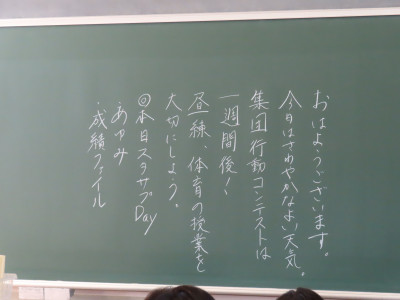 おはようございます。
今日はさわやかなよい天気。
集団行動コンテストは
一週間後！
昼練、体育の授業を
大切にしよう。
◎本日スタサプDay
・あゆみ
・成績ファイル